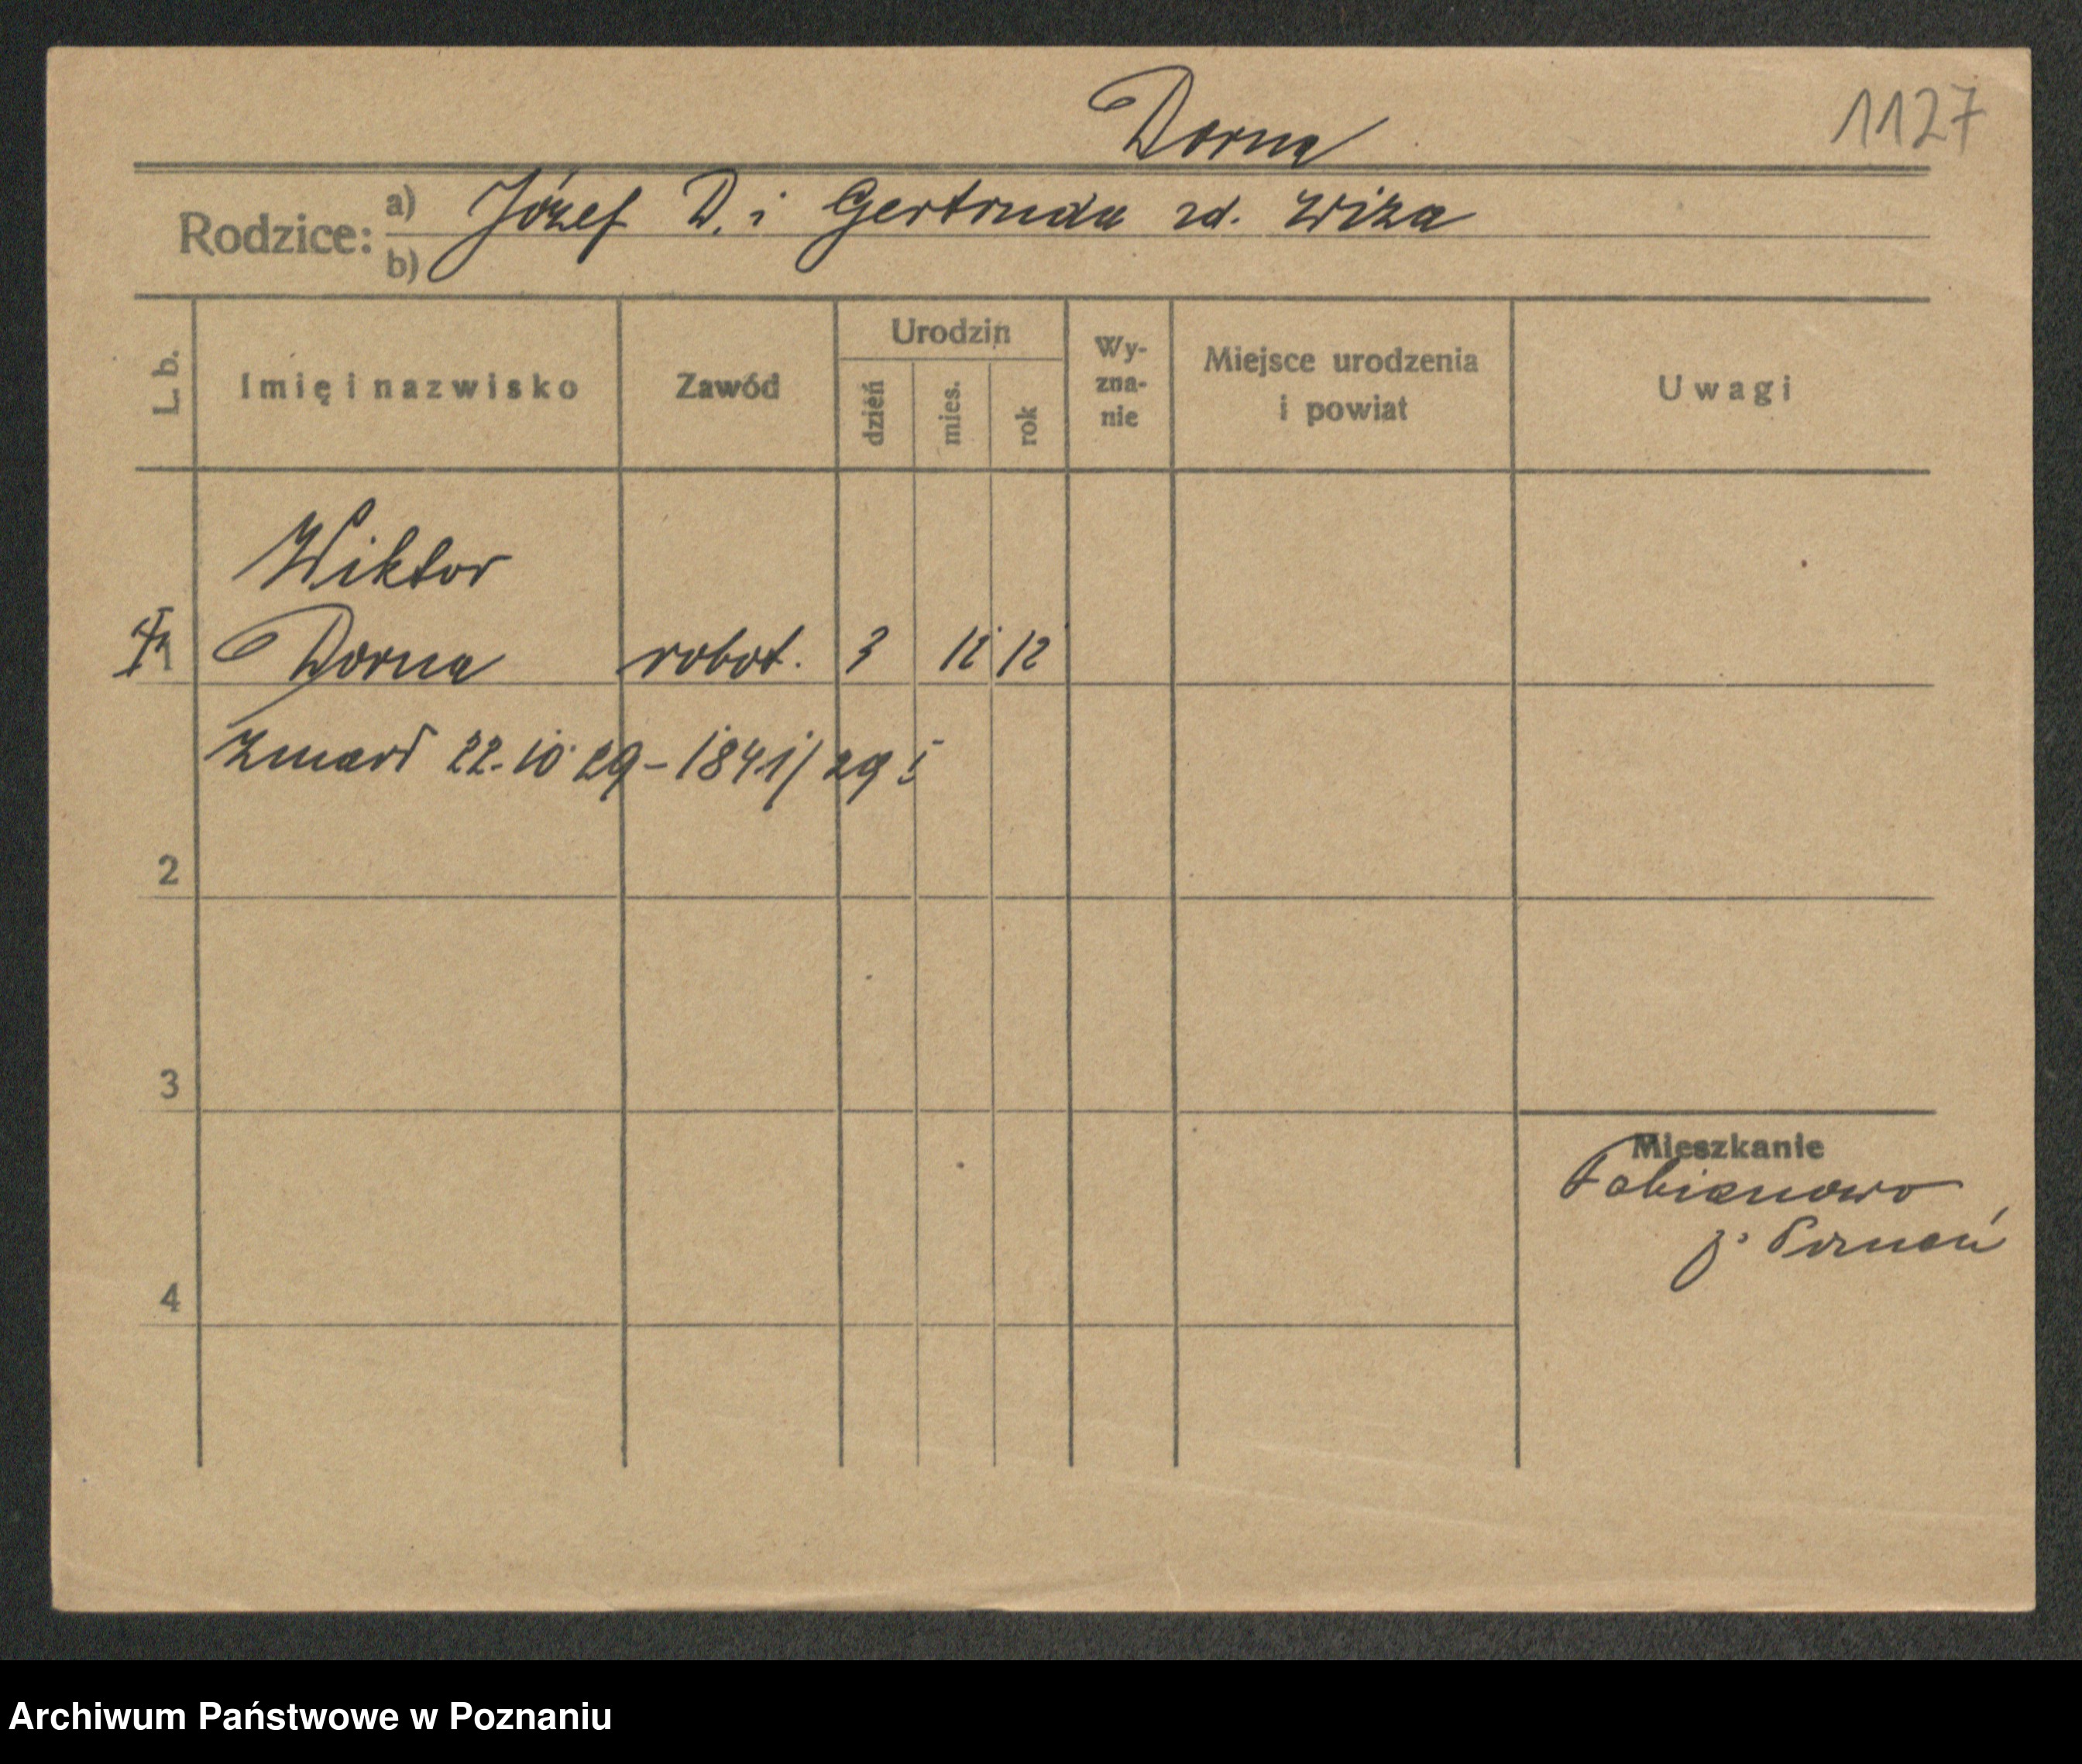 Dorna
1127
Rodzice: a) Józef D. i Gertruda zd. Wiza
b)
L. b.
Imię i nazwisko
Zawód
Urodzin
dzień
mies.
rok
Wy-
zna-
nie
Miejsce urodzenia
i powiat
Uwagi
Wiktor
1 Dorna robot. 3 12 12
Zmarł 22.10.29 - 1841/29
2
3
Mieszkanie
Fabianowo
p. Poznań
4
Archiwum Państwowe w Poznaniu